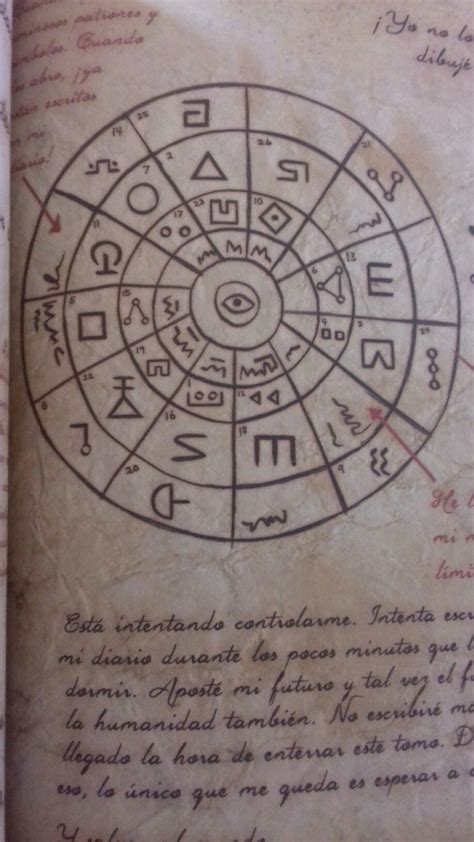 patrones y
Cuando
abro, ¡ya
escritos
mi
diario!
¡Yo no lo
dibujé
25
14
2
26
21
7
23
10
17
11
13
6
15
5
4
3
19
22
1
12
8
16
18
9
20
He
mi
Está intentando controlarme. Intenta
mi diario durante los pocos minutos que
dormir. Aposté mi futuro y tal vez el
la humanidad también. No escribiré
llegado la hora de enterrar este tomo.
eso, lo único que me queda es esperar a